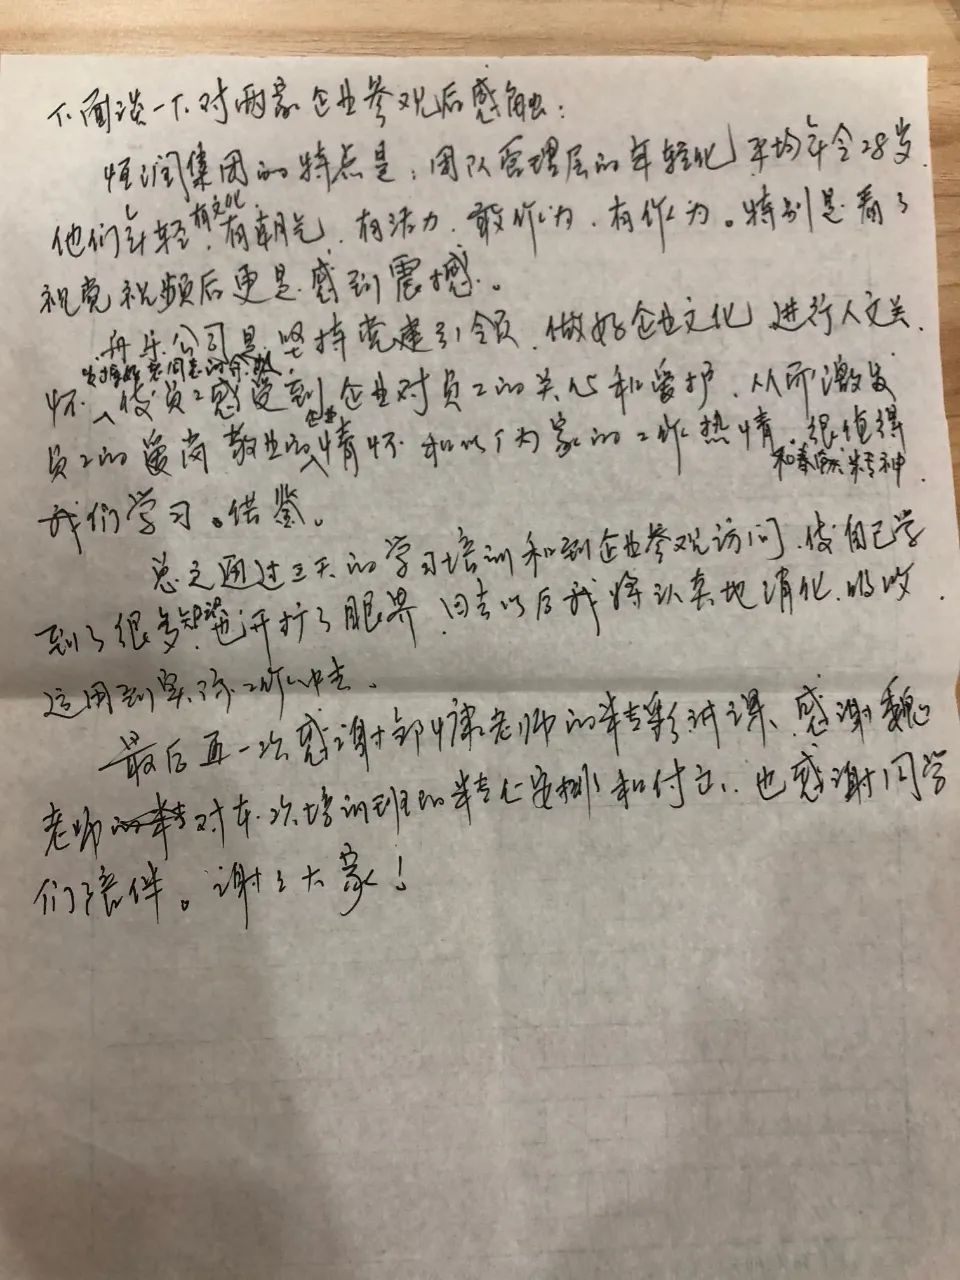 下面谈一下对两家企业参观后感触：
恒润集团的特点是：团队管理层的年轻化，平均年令28岁．
他们年轻．有文化．有朝气．有活力．敢作为．有作为。特别是看了
视觉视频后更是感到震撼。
丹乐公司是坚持党建引领．做好企业文化，进行人文关
怀．发挥好老同志的余热．使员工感受到企业对员工的关心和爱护．从而激发
员工的爱岗敬业的企业情怀和以厂为家的工作热情和奉献精神．很值得
我们学习。借鉴。
总之通过三天的学习培训和到企业参观访问．使自己学
到了很多知识也开扩了眼界．回去以后我将认真地消化．吸收．
运用到实际工作中去．
最后再一次感谢邹老师的精彩讲课、感谢魏
老师对本次培训班的精心安排和付出．也感谢同学
们陪伴。谢谢大家！